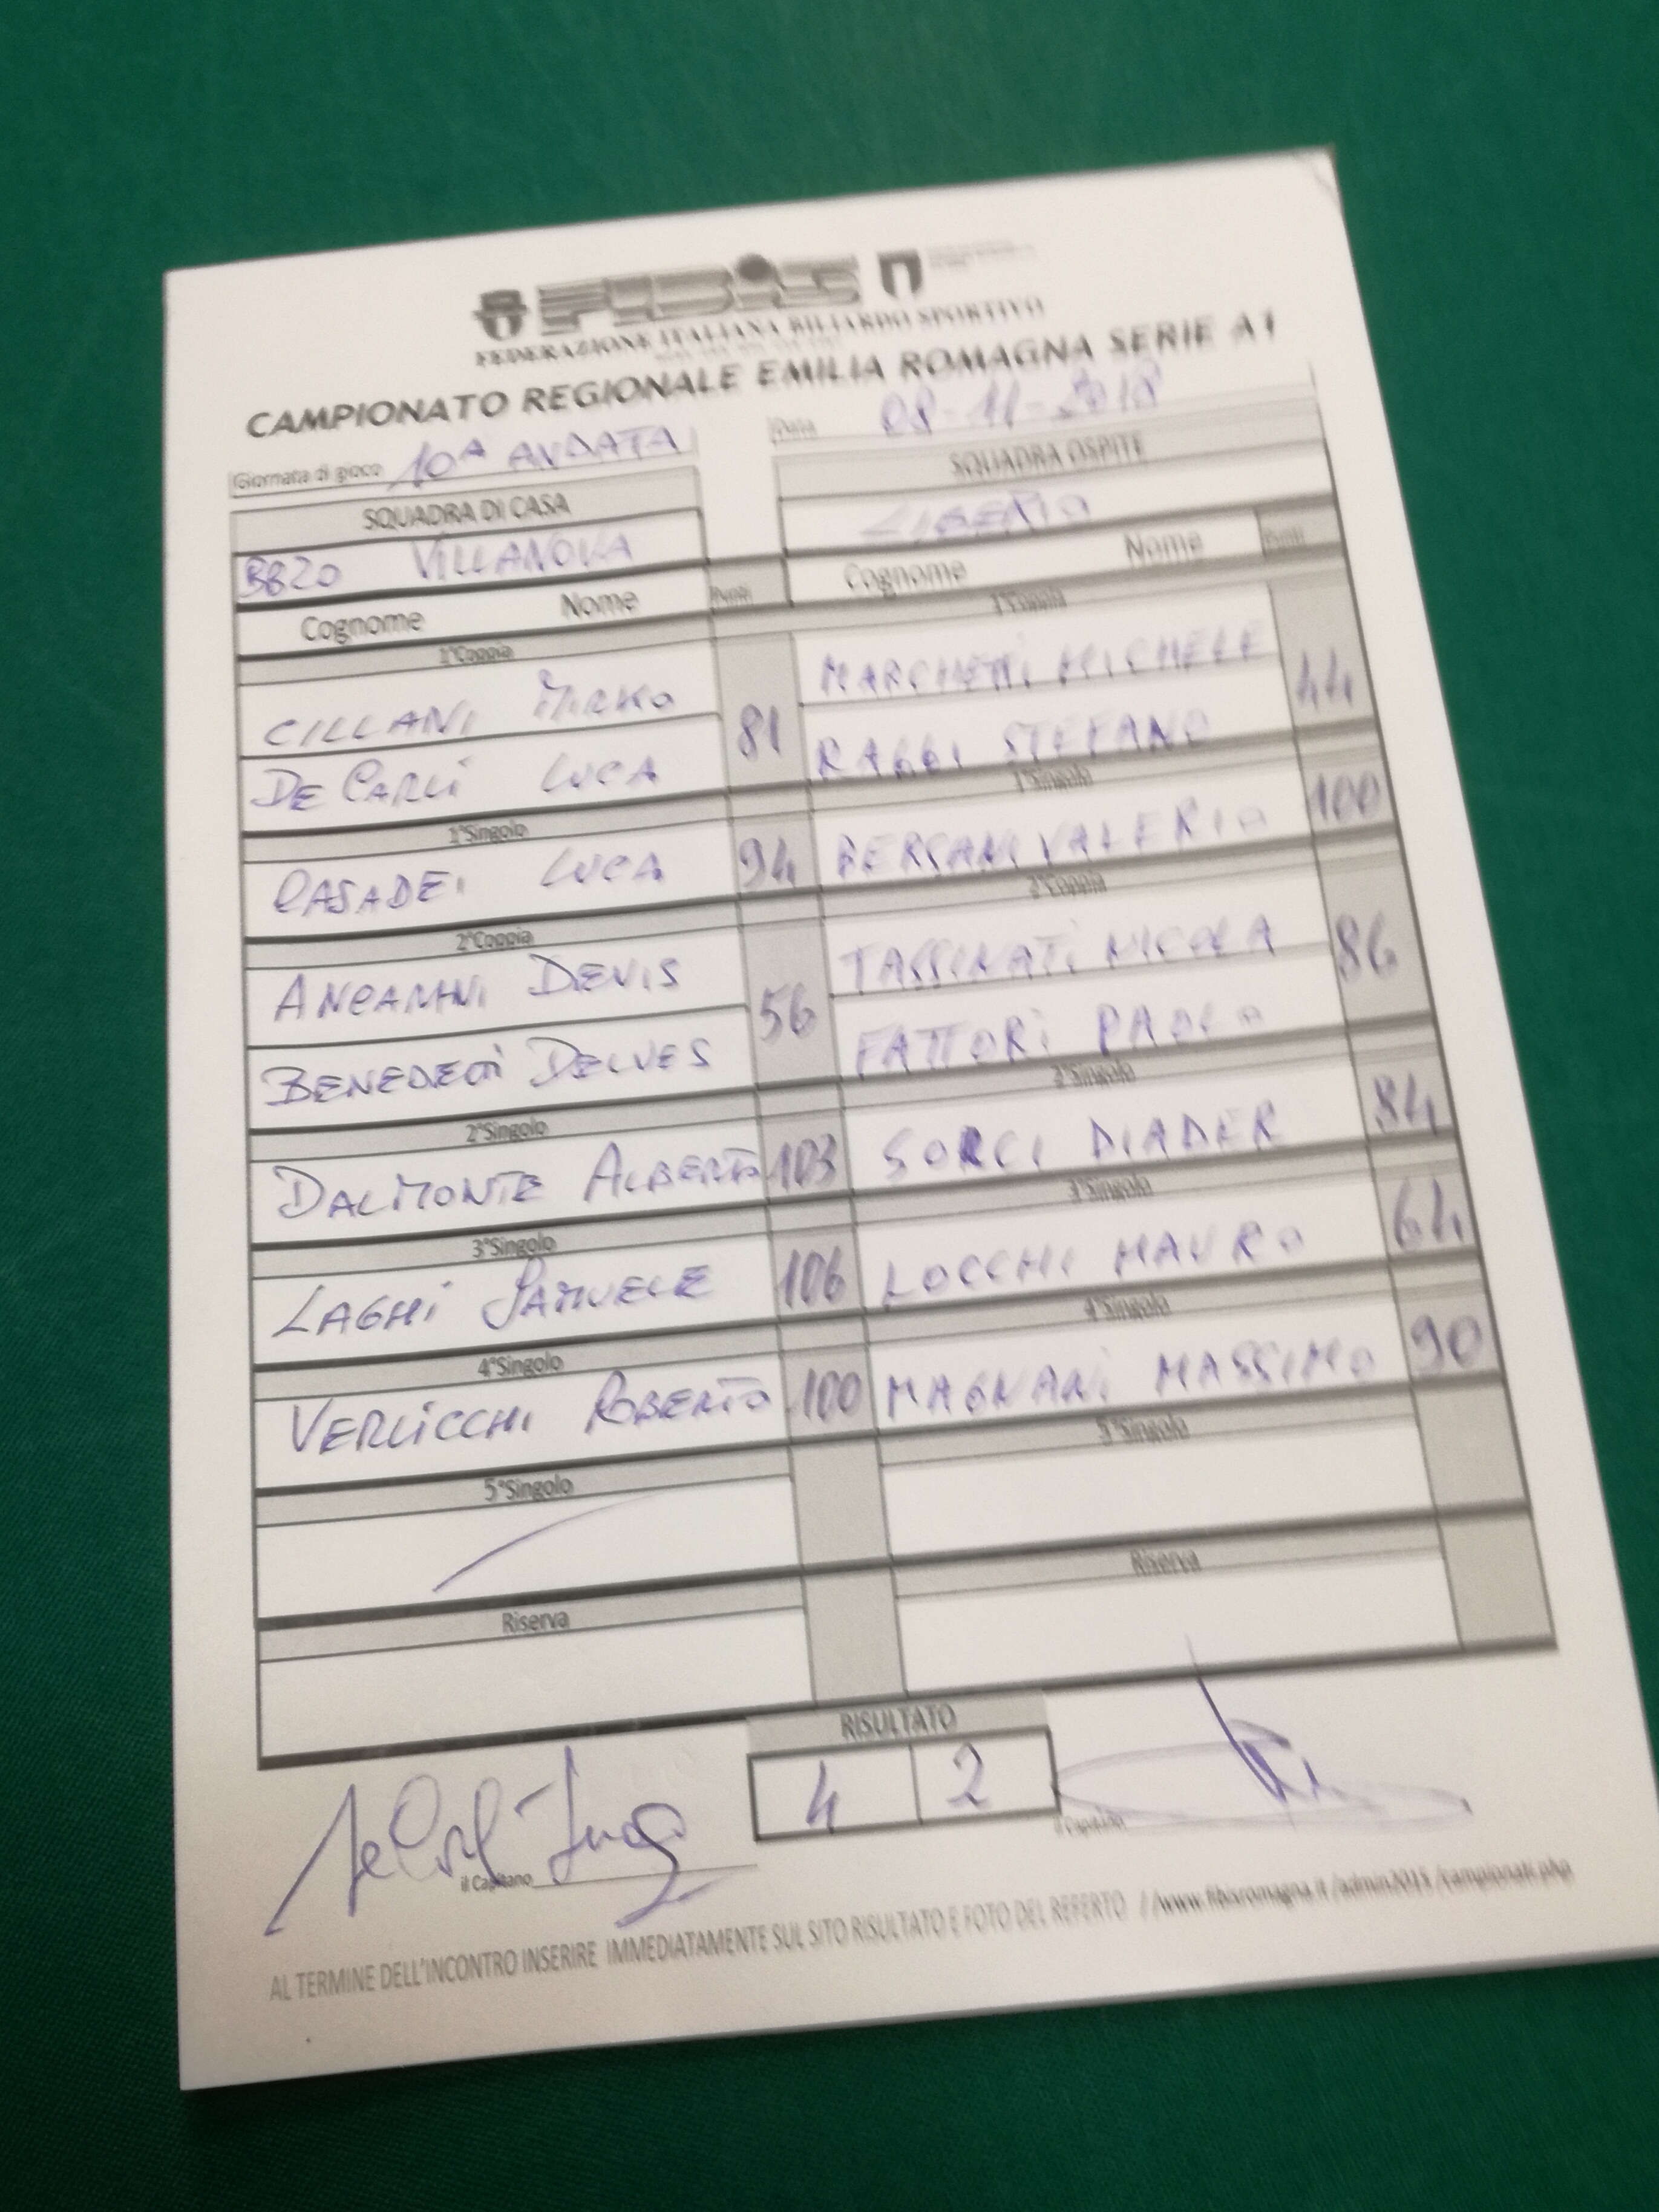 FIBiS
FEDERAZIONE ITALIANA BILIARDO SPORTIVO
CAMPIONATO REGIONALE EMILIA ROMAGNA SERIE A1
Giornata di gioco 10ª ANDATA Data -11-2018
SQUADRA DI CASA SQUADRA OSPITE
BB20 VILLANOVA
Cognome Nome Punti Cognome Nome Punti
1°Coppia 1°Coppia
CILLANI MIRKO 81 MARCHETTI MICHELE 44
DE CARLI LUCA RAGGI STEFANO
1°Singolo 1°Singolo
CASADEI LUCA 94 BERSANI VALERIO 100
2°Coppia 2°Coppia
ANCARANI DEVIS 56 TASSINATI NICOLA 86
BENEDETTI DELVES FATTORI PAOLO
2°Singolo 2°Singolo
DALMONTE ALBERTO 103 SORCI DIADER 84
3°Singolo 3°Singolo
LAGHI SAMUELE 106 LOCCHI MAURO 64
4°Singolo 4°Singolo
VERLICCHI ROBERTO 100 MAGNANI MASSIMO 90
5°Singolo 5°Singolo
Riserva Riserva
RISULTATO
4 2
il Capitano il Capitano
AL TERMINE DELL'INCONTRO INSERIRE IMMEDIATAMENTE SUL SITO RISULTATO E FOTO DEL REFERTO //www.fibisromagna.it /admin2015 /campionati.php